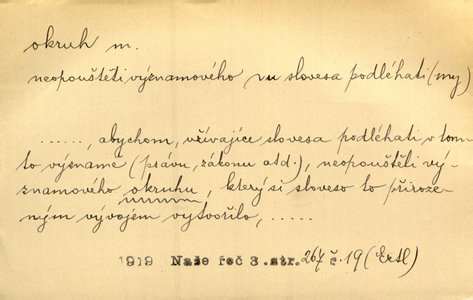 okruh m.
neopouštěti významového ~u slovesa podléhati (my)
......, abychom, užívajíce slovesa podléhati v tom-
to význame (právu, zákonu atd.), neopouštěli vý-
znamového okruhu, který si sloveso to přiroze-
ným vývojem vytvořilo, ......
1919 Naše řeč 3. str. 267 č. 19 (Ertl)